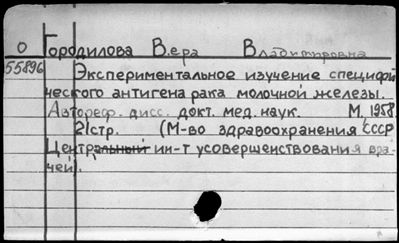 О Городилова Вера Владимировна
55896 Экспериментальное изучение специфи
ческого антигена рака молочной железы.
Автореф. дисс. докт. мед. наук. М. 1958.
21стр. (М-во здравоохранения СССР
Центральный ин-т усовершенствования вра-
чей).